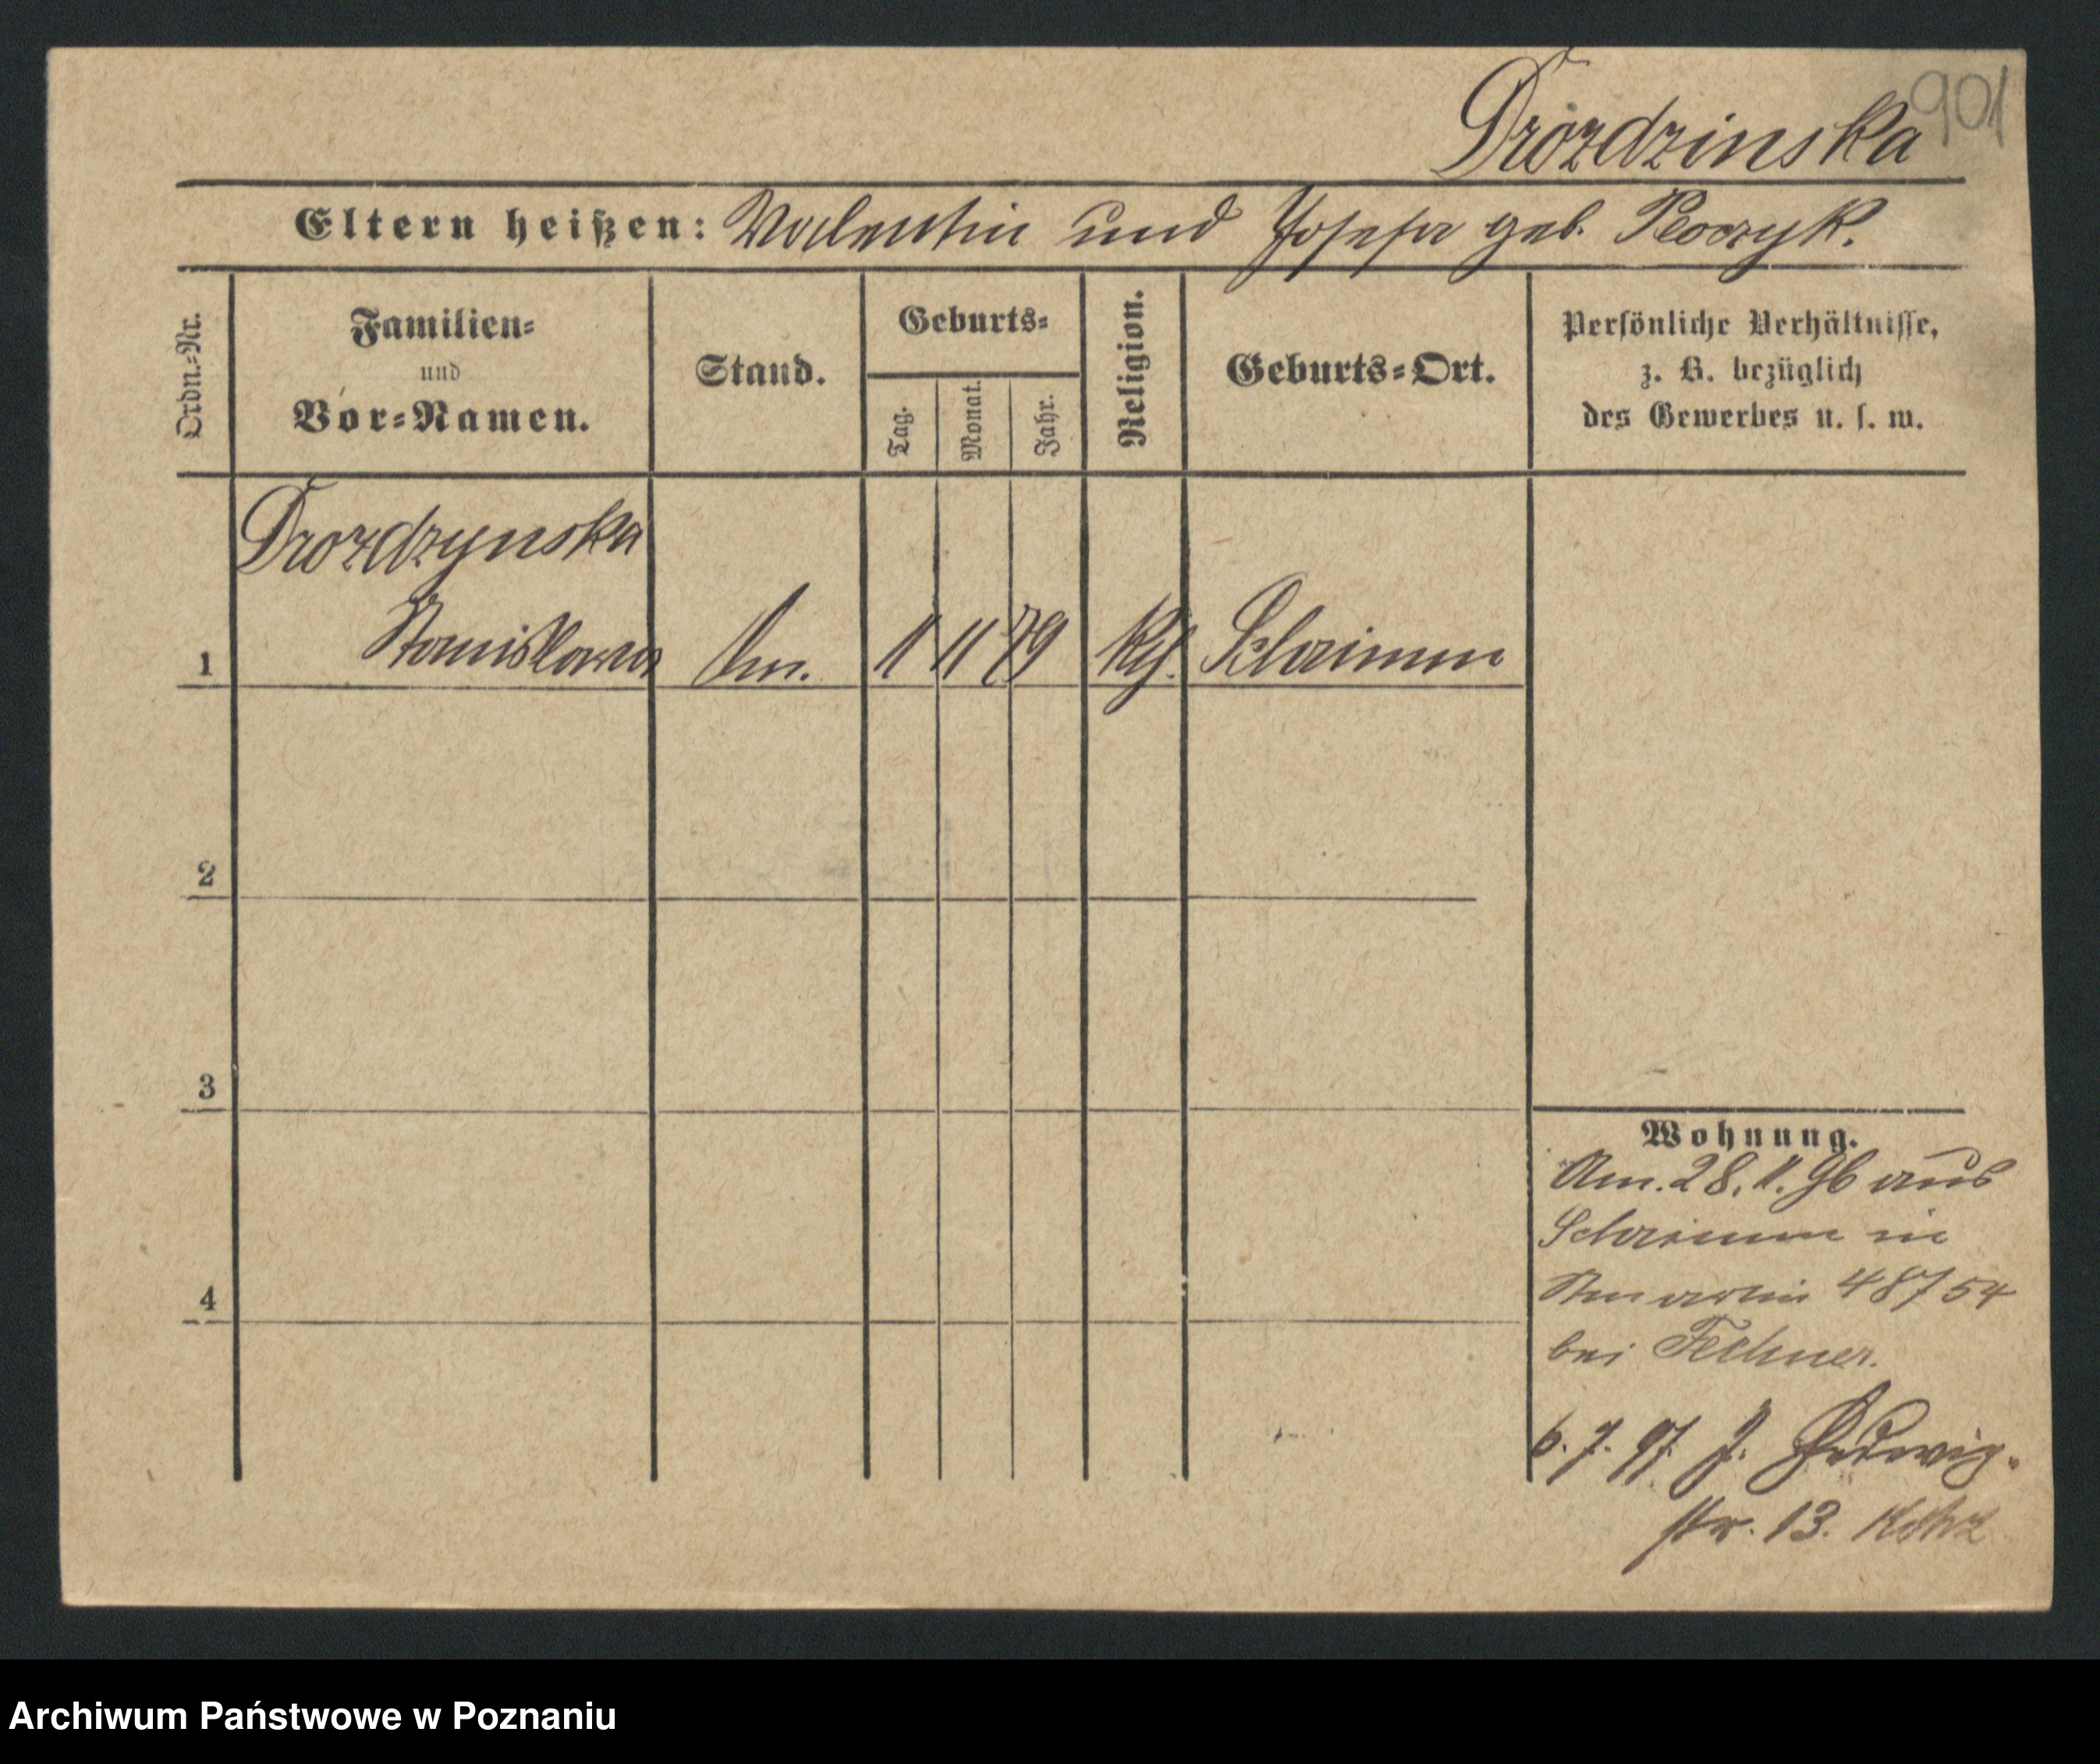 901
Drozdzinska
Eltern heißen: Valentin und Josefa geb.
Ordn.-Nr.
Familien-
und
Vor-Namen.
Stand.
Geburts-
Tag.
Monat.
Jahr.
Religion.
Geburts-Ort.
Persönliche Verhältnisse,
z. B. bezüglich
des Gewerbes u. s. w.
Drozdzynska
1 Stanislawa 11 11 79 kth. Schrimm
2
3
4
Wohnung.
Am. 28. 11. 96 aus
Schrimm in
St martin 48 7 54
bei Fechner.
6. 7. 97. J. Hedwig-
str. 13.
Archiwum Państwowe w Poznaniu